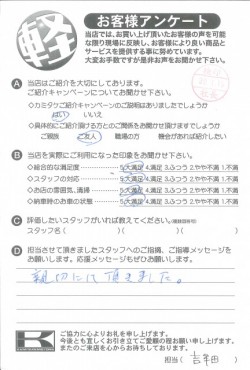 軽
お客様アンケート
当店では、お買い上げ頂いたお客様の声を可能
な限り現場に反映し、お客様により良い商品と
サービスを提供する事に努めています。
大変お手数ですが是非お声をお聞かせ下さい。
A 当店はご紹介を大切にしております。
ご紹介キャンペーンについてお聞かせ下さい。
◇カミタケご紹介キャンペーンのご説明はありましたでしょうか
はい いいえ
◇具体的にご紹介頂ける方とのご関係をお聞かせ頂けますでしょうか
ご親族 ご友人 職場の方 機会があれば紹介したい
B 当店を実際にご利用になった印象をお聞かせ下さい。
◇総合的な満足度 5.大満足 4.満足 3.ふつう 2.やや不満 1.不満
◇スタッフの対応 5.大満足 4.満足 3.ふつう 2.やや不満 1.不満
◇お店の雰囲気、清掃 5.大満足 4.満足 3.ふつう 2.やや不満 1.不満
◇納車時のお車の状態 5.大満足 4.満足 3.ふつう 2.やや不満 1.不満
C 評価したいスタッフがいれば教えてください。(複数回答可)
スタッフ名( )( )( )
D 担当させて頂きましたスタッフへのご指摘、ご指導メッセージを
お願いします。応援メッセージもぜひお願いします。
親切にして頂きました。
K
ご協力に心よりお礼を申し上げます。
今後とも宜しくお引き立てご愛顧の程お願い申し上げます。
またのご来店を心からお待ちしております。
担当( 吉年田 )